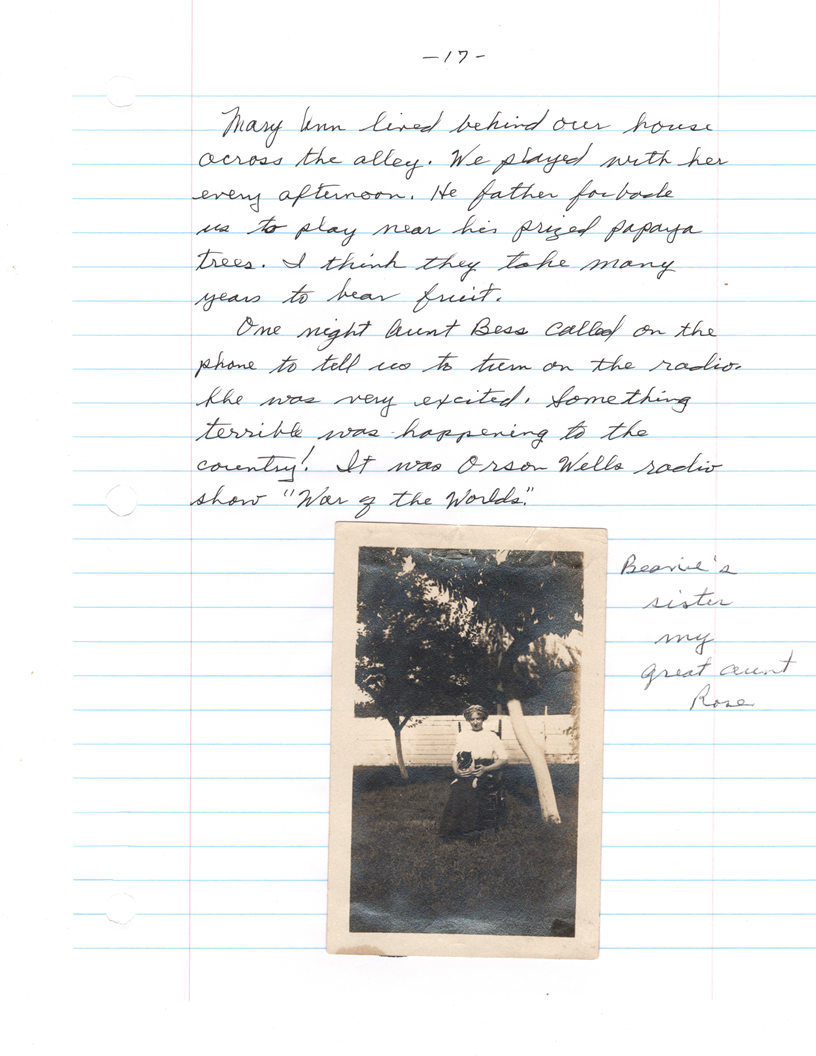 -17-
Mary Ann lived behind our house
across the alley. We played with her
every afternoon. He father forbade
us to play near his prized papaya
trees. I think they take many
years to bear fruit.
One night Aunt Bess called on the
phone to tell us to turn on the radio.
She was very excited. Something
terrible was happening to the
country! It was Orson Wells radio
show "War of the Worlds."
sister
my
great aunt
Rose